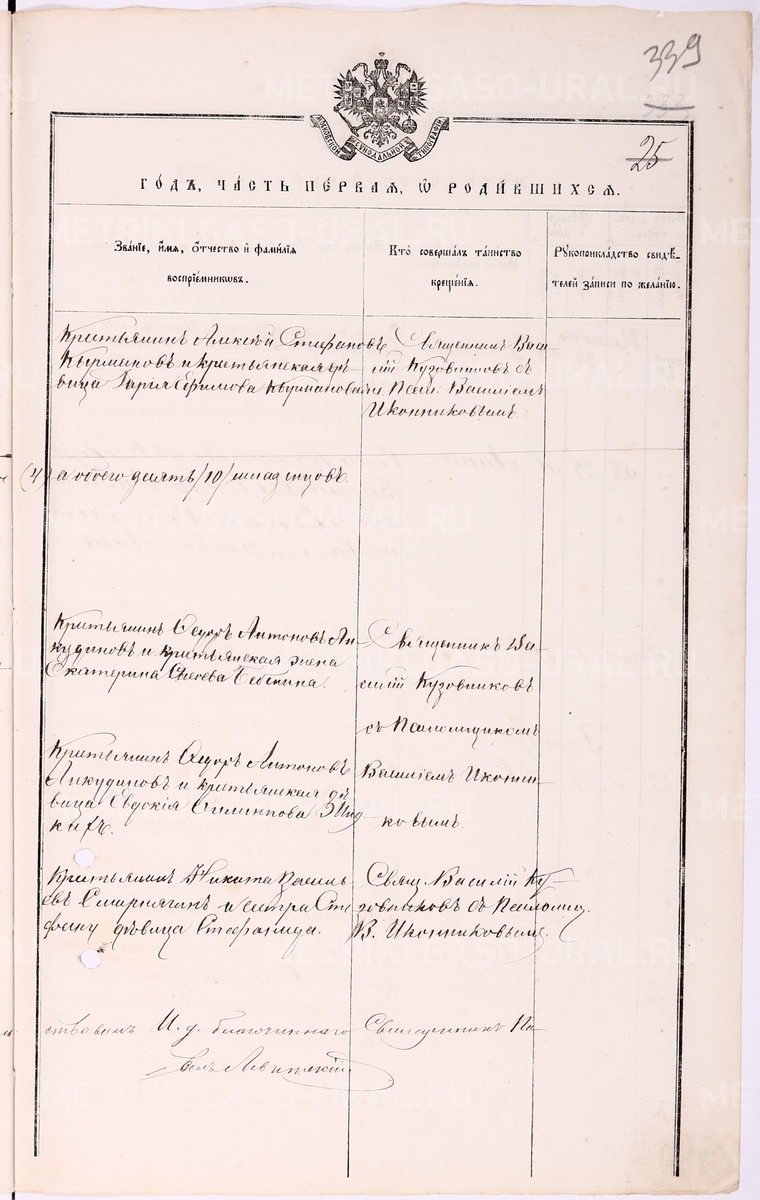 339
25
МОСКОВСКОЙ СѴНОДАЛЬНОЙ ТИПОГРАФІИ
ГО́ДЪ, ЧА́СТЬ ПЕ́РВАЯ, Ѡ РОДИ́ВШИХСЯ.
Зва́нїе, и́мя, о́тчество и҆ фами́лїя
воспрїе́мниковъ.
Кто̀ соверша́лъ та́инство
креще́нїя.
Рукоприкла́дство свидѣ́-
телей за́писи по жела́нїю.
Крестьянинъ Алексѣй Стефановъ
Кырмановъ и крестьянская дѣ-
вица Дарія Ефимова Кырманова
Священникъ Васи
лій Кузовниковъ съ
Псал. Василіемъ
Иконниковымъ
(4) а обоего десять /10/ младенцовъ.
Крестьянинъ Ѳедоръ Антоновъ Ан-
кудиновъ и крестьянская жена
Екатерина
Священникъ Ва-
силій Кузовниковъ
съ Псаломщикомъ
Василіемъ Иконни-
ковымъ.
Крестьянинъ Ѳедоръ Антоновъ
Анкудиновъ и крестьянская дѣ-
вица Евдокія Филиппова
Крестьянинъ Никита Василь
евъ Смирнягинъ и сестра
дѣвица Стефанида.
Свящ. Василій Ку-
зовниковъ съ Псаломщ.
В. Иконниковымъ.
И. д. благочиннаго Священникъ Па-
велъ Левитскій
METRIKI.GASO-URAL.RU